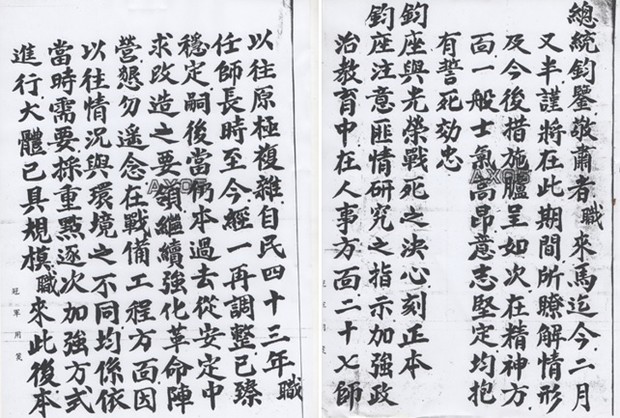 總統鈞鑒敬肅者職來馬迄今二月
又半謹將在此期間所瞭解情形
及今後措施臚呈如次在精神方
面一般士氣高昂意志堅定均抱
有誓死効忠
鈞座與光榮戰死之決心刻正本
鈞座注意匪情研究之指示加強政
治教育中在人事方面二十七師
以往原極複雜自民四十三年職
任師長時至今經一再調整已臻
穩定嗣後當仍本過去從安定中
求改造之要領繼續強化革命陣
營懇勿遙念在戰備工程方面因
以往情況與環境之不同均係依
當時需要採重點逐次加強方式
進行大體已具規模職來此後本
冠軍用箋